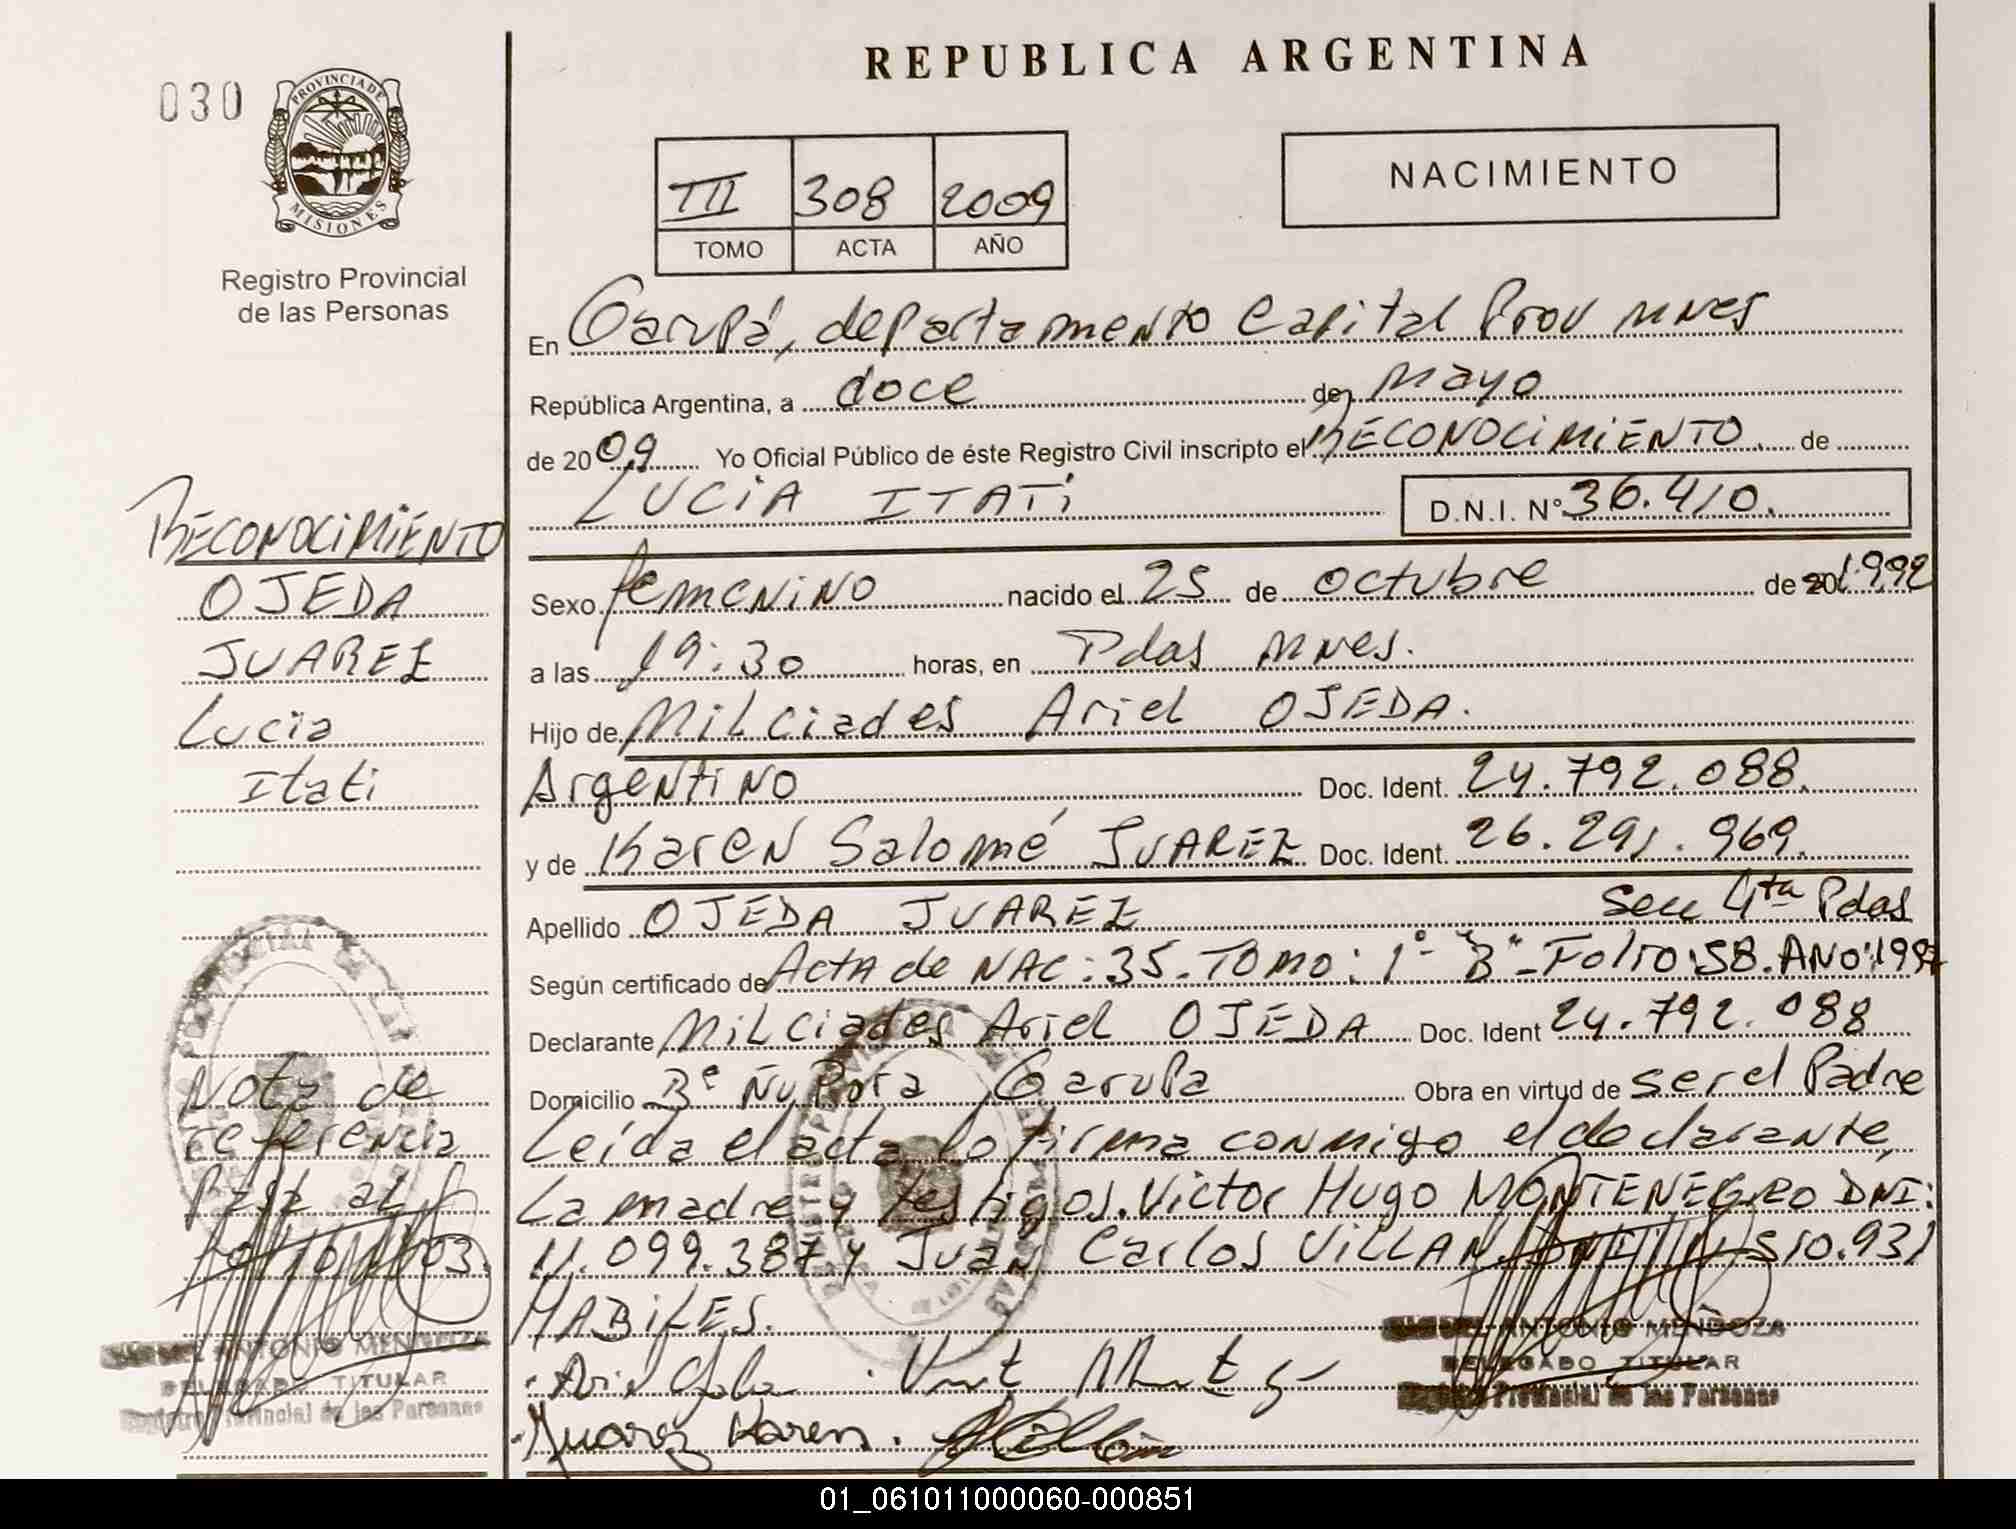 REPUBLICA ARGENTINA
030
PROVINCIA DE MISIONES
Registro Provincial
de las Personas
III 308 2009
TOMO ACTA AÑO
NACIMIENTO
En Garupá, departamento Capital Prov mnes
República Argentina, a doce de mayo
de 2009 Yo Oficial Público de éste Registro Civil inscripto el RECONOCIMIENTO de
LUCIA ITATI D.N.I. Nº 36.410.
Sexo femenino nacido el 25 de octubre de 1992
a las 19:30 horas, en Pdas mnes.
Hijo de Milciades Ariel OJEDA.
Argentino Doc. Ident. 24.792.088.
y de Karen Salomé JUAREZ Doc. Ident. 26.291.969.
Apellido OJEDA JUAREZ Secc 4ta Pdas
Según certificado de Acta de NAC: 35. TOMO: 1º "B" - Folio: 58. AÑO: 1997
Declarante Milciades Ariel OJEDA Doc. Ident 24.792.088
Domicilio Bº Ñu Pora Garupa Obra en virtud de ser el Padre
Leída el acta lo firma conmigo el declarante,
La madre y testigos. Victor Hugo MONTENEGRO DNI:
11.099.387 y Juan Carlos VILLAN 510.931
HABILES.
Juarez Karen.
ANTONIO MENDOZA
DELEGADO TITULAR
Registro Provincial de las Personas
RECONOCIMIENTO
OJEDA
JUAREZ
Lucia
Itati
Nota de
referencia
Pasa al
ANTONIO MENDOZA
DELEGADO TITULAR
Registro Provincial de las Personas
01_061011000060-000851